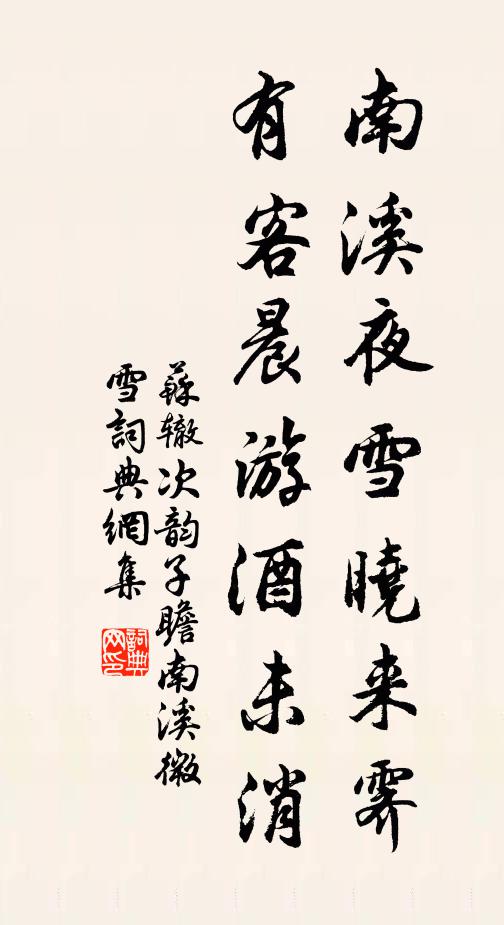 南溪夜雪曉来霽
有客晨游酒未消
蘇辙次韵子瞻南溪微
雪詞典網集
詞典网印